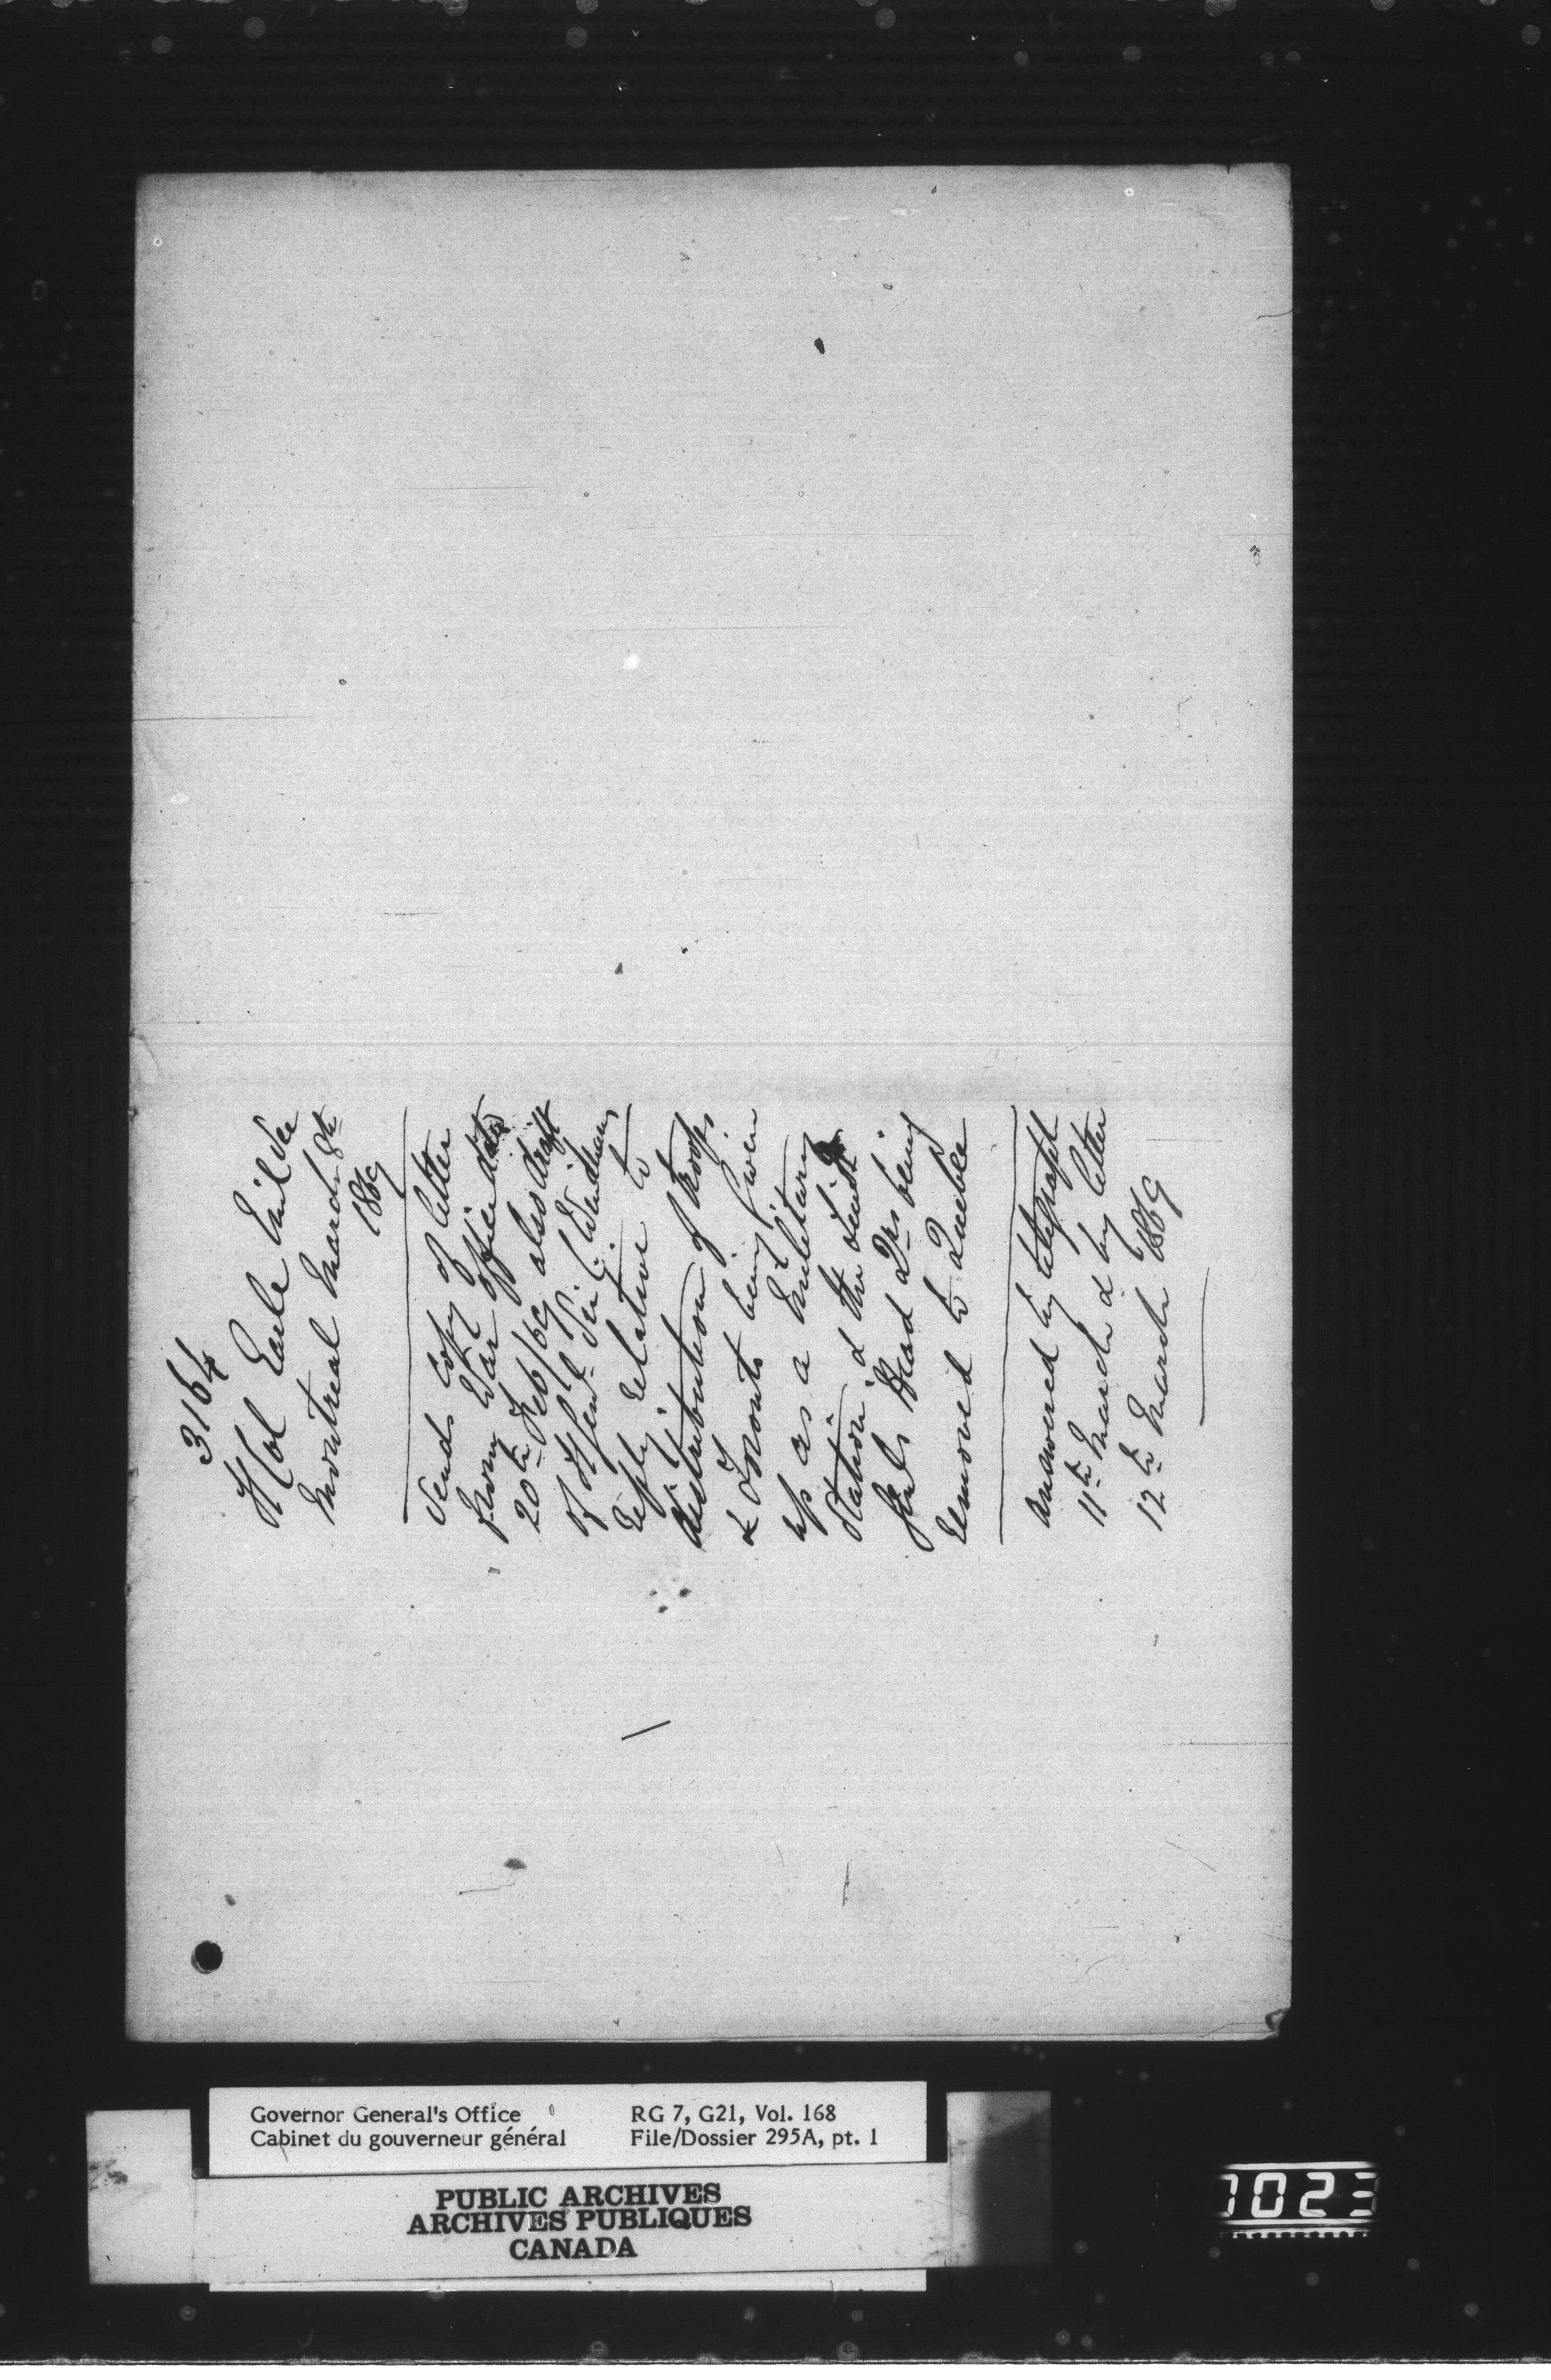 3164
Col Earle Mil Sec
Montreal March 8th
1869
Sends copy of letter
from War Office dated
20th Feb/69 also draft
of Lt Genl Sir C. Windham's
reply relative to
distribution of troops
& Toronto being given
up as a Military
Station & the Lieut
Genls Head Qrs being
removed to Quebec
Answered by telegraph
11th March & by letter
12th March 1869
Governor General's Office
Cabinet du gouverneur général
RG 7, G21, Vol. 168
File/Dossier 295A, pt. 1
PUBLIC ARCHIVES
ARCHIVES PUBLIQUES
CANADA
1023